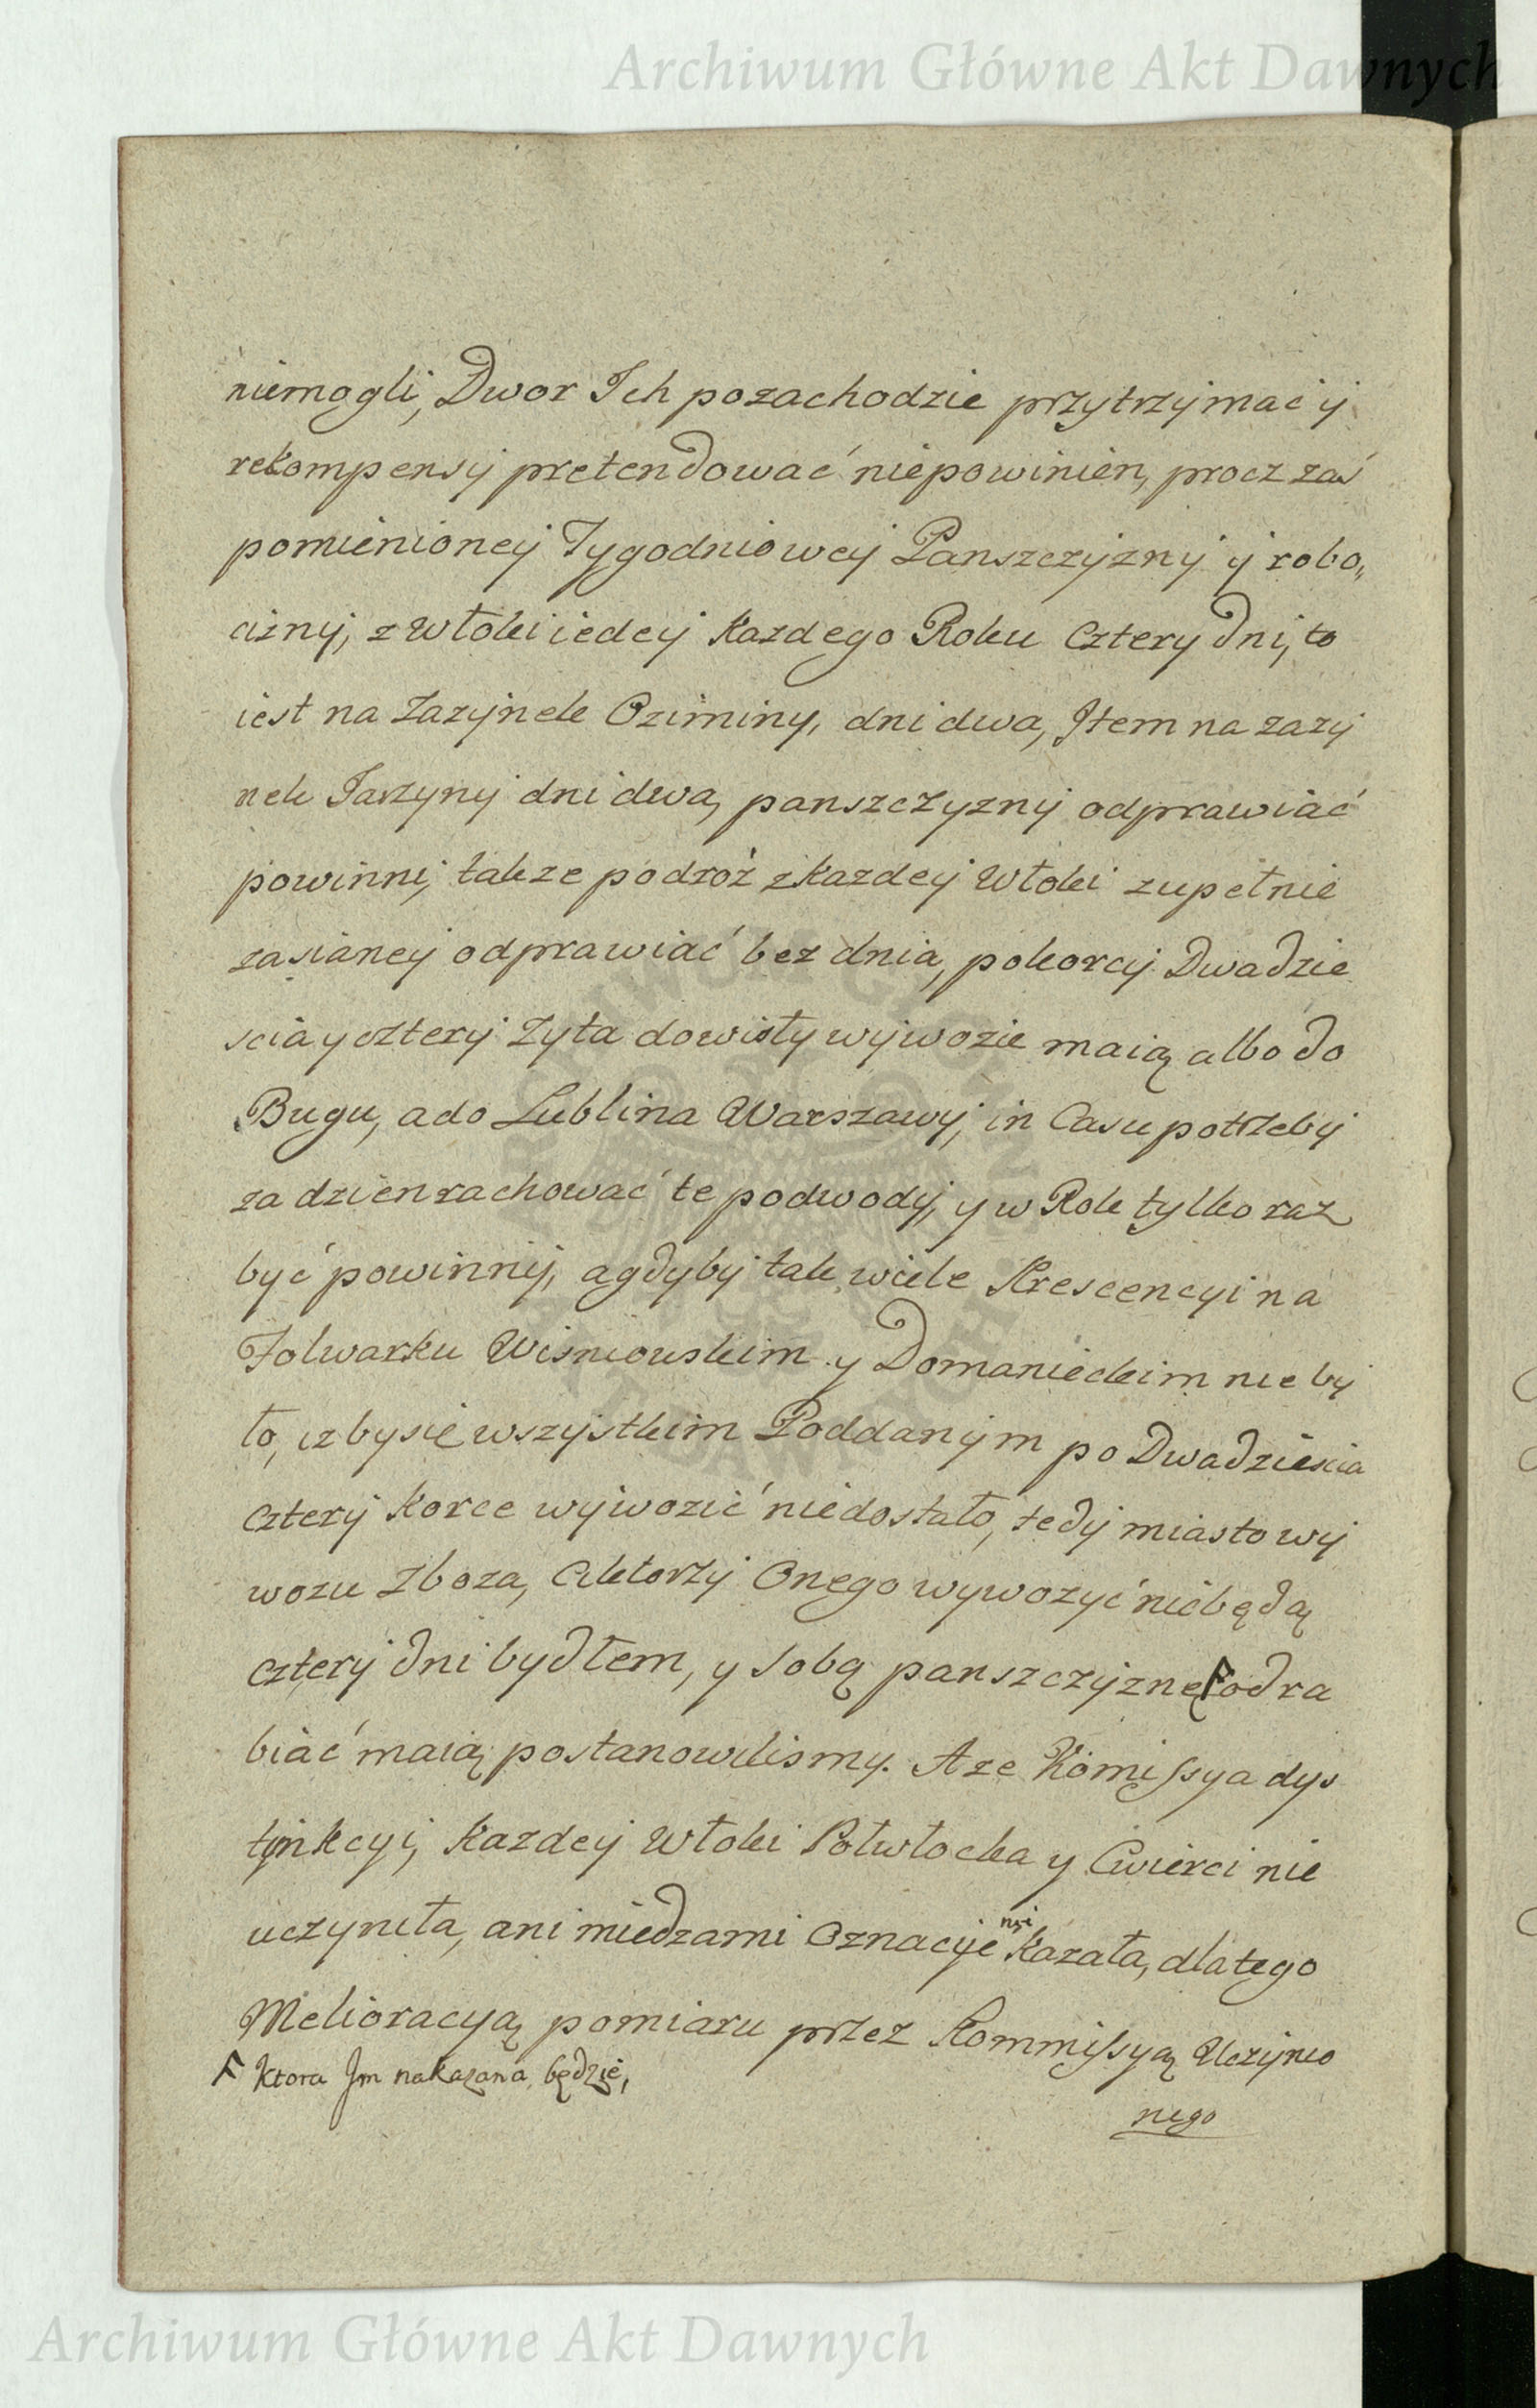 Archiwum Główne Akt Dawnych
niemogli, Dwor Ich pozachodzie przytrzymac y
rekompensy pretendować niepowinien, procz zaś
pomienioney Tygodniowey Panszczyzny y robo„
cizny, z Włoki iedey Kazdego Roku Cztery dni, to
iest na Zazynek Oziminy, dni dwa, Item na zazy
nek Jarzyny dni dwa, panszczyzny odprawiać
powinni, takze podroż z Kazdey Włoki zupełnie
zasianey odprawiać bez dnia, pokorcy Dwadzie
scia y cztery Zyta dowisły wywozic maią albo do
Bugu, ado Lublina Warszawy, in Casu potrzeby
za dzien rachować te podwody, y w Rok tylko raz
być powinny, agdyby tak wiele Krescencyi na
Folwarku Wisniowskim y Domanieckim nie by
ło, izbysie wszystkim Poddanym po Dwadziescia
cztery Korce wywozić niedostało, tedy miasto wy
wozu Zboza, Ciktorzy Onego wywozyć niebędą
cztery dni bydłem, y Sobą panszczyznę odra
biać maią postanowilismy. A ze Komissya dys
tynkcyi, Kazdey Włoki Połwłocka y Cwierci nie
uczyniła, ani miedzami Oznacyie Kazała, dlatego
nęi
Melioracyą pomiaru przez Kommissyą Uczynio
Ktora Im nakazana będzie,
nego
Archiwum Główne Akt Dawnych